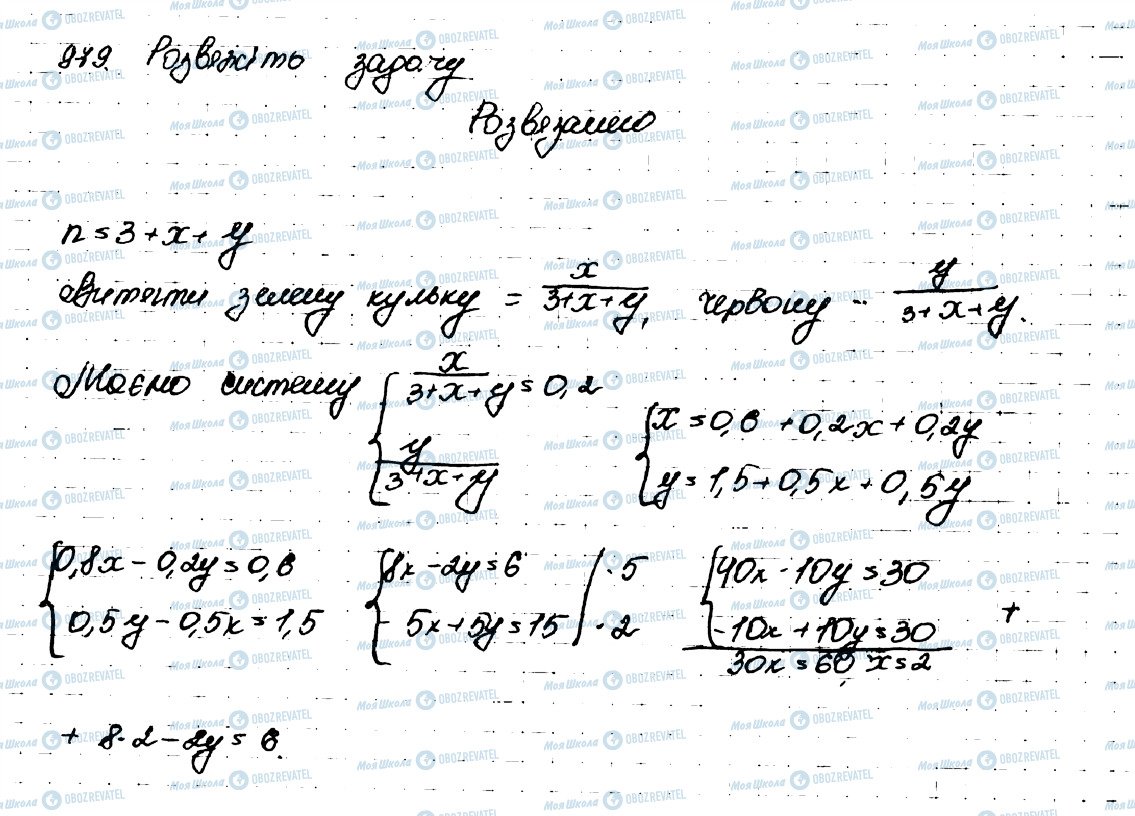 979. Розвяжіть задачу
Розвязанно
n = 3 + x + y
Витягти зелену кульку = x/(3+x+y), червону - y/(3+x+y).
Маємо систему { x/(3+x+y) = 0,2
y/(3+x+y)
{ x = 0,6 + 0,2x + 0,2y
y = 1,5 + 0,5x + 0,5y
{ 0,8x - 0,2y = 0,6
0,5y - 0,5x = 1,5
{ 8x - 2y = 6 | · 5
- 5x + 5y = 15 | · 2
{ 40x - 10y = 30
- 10x + 10y = 30 +
30x = 60, x = 2
+ 8·2 - 2y = 6.